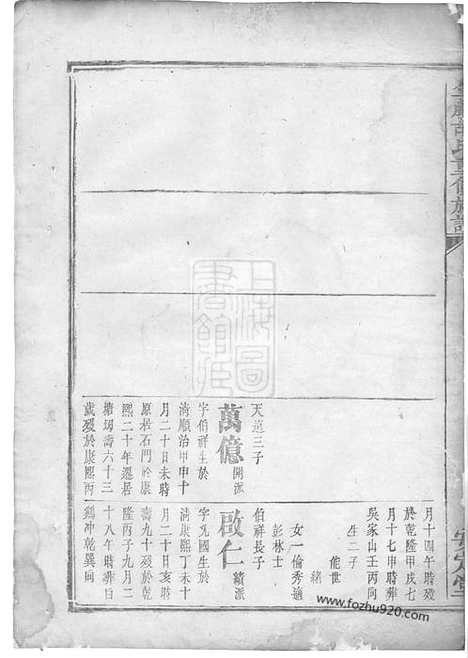 胡氏重修族譜
安定堂
三子
萬億 開派
字伯祥生於
清順治甲申十
月二十日未時
原居石門於康
熙二十年遷居
塘壽六十三
歲歿於康熙丙
月十四午時歿
於乾隆甲戌七
月十七申時葬
吳家山壬丙向
生二子
能世
緒
女一倫秀適
彭林士
伯祥長子
啟仁 續派
字國生於
清康熙丁未十
月二十日亥時
壽九十歿於乾
隆丙子九月二
十八午時葬白
鷄冲乾巽向
上海圖書館藏
www.fozhu920.com